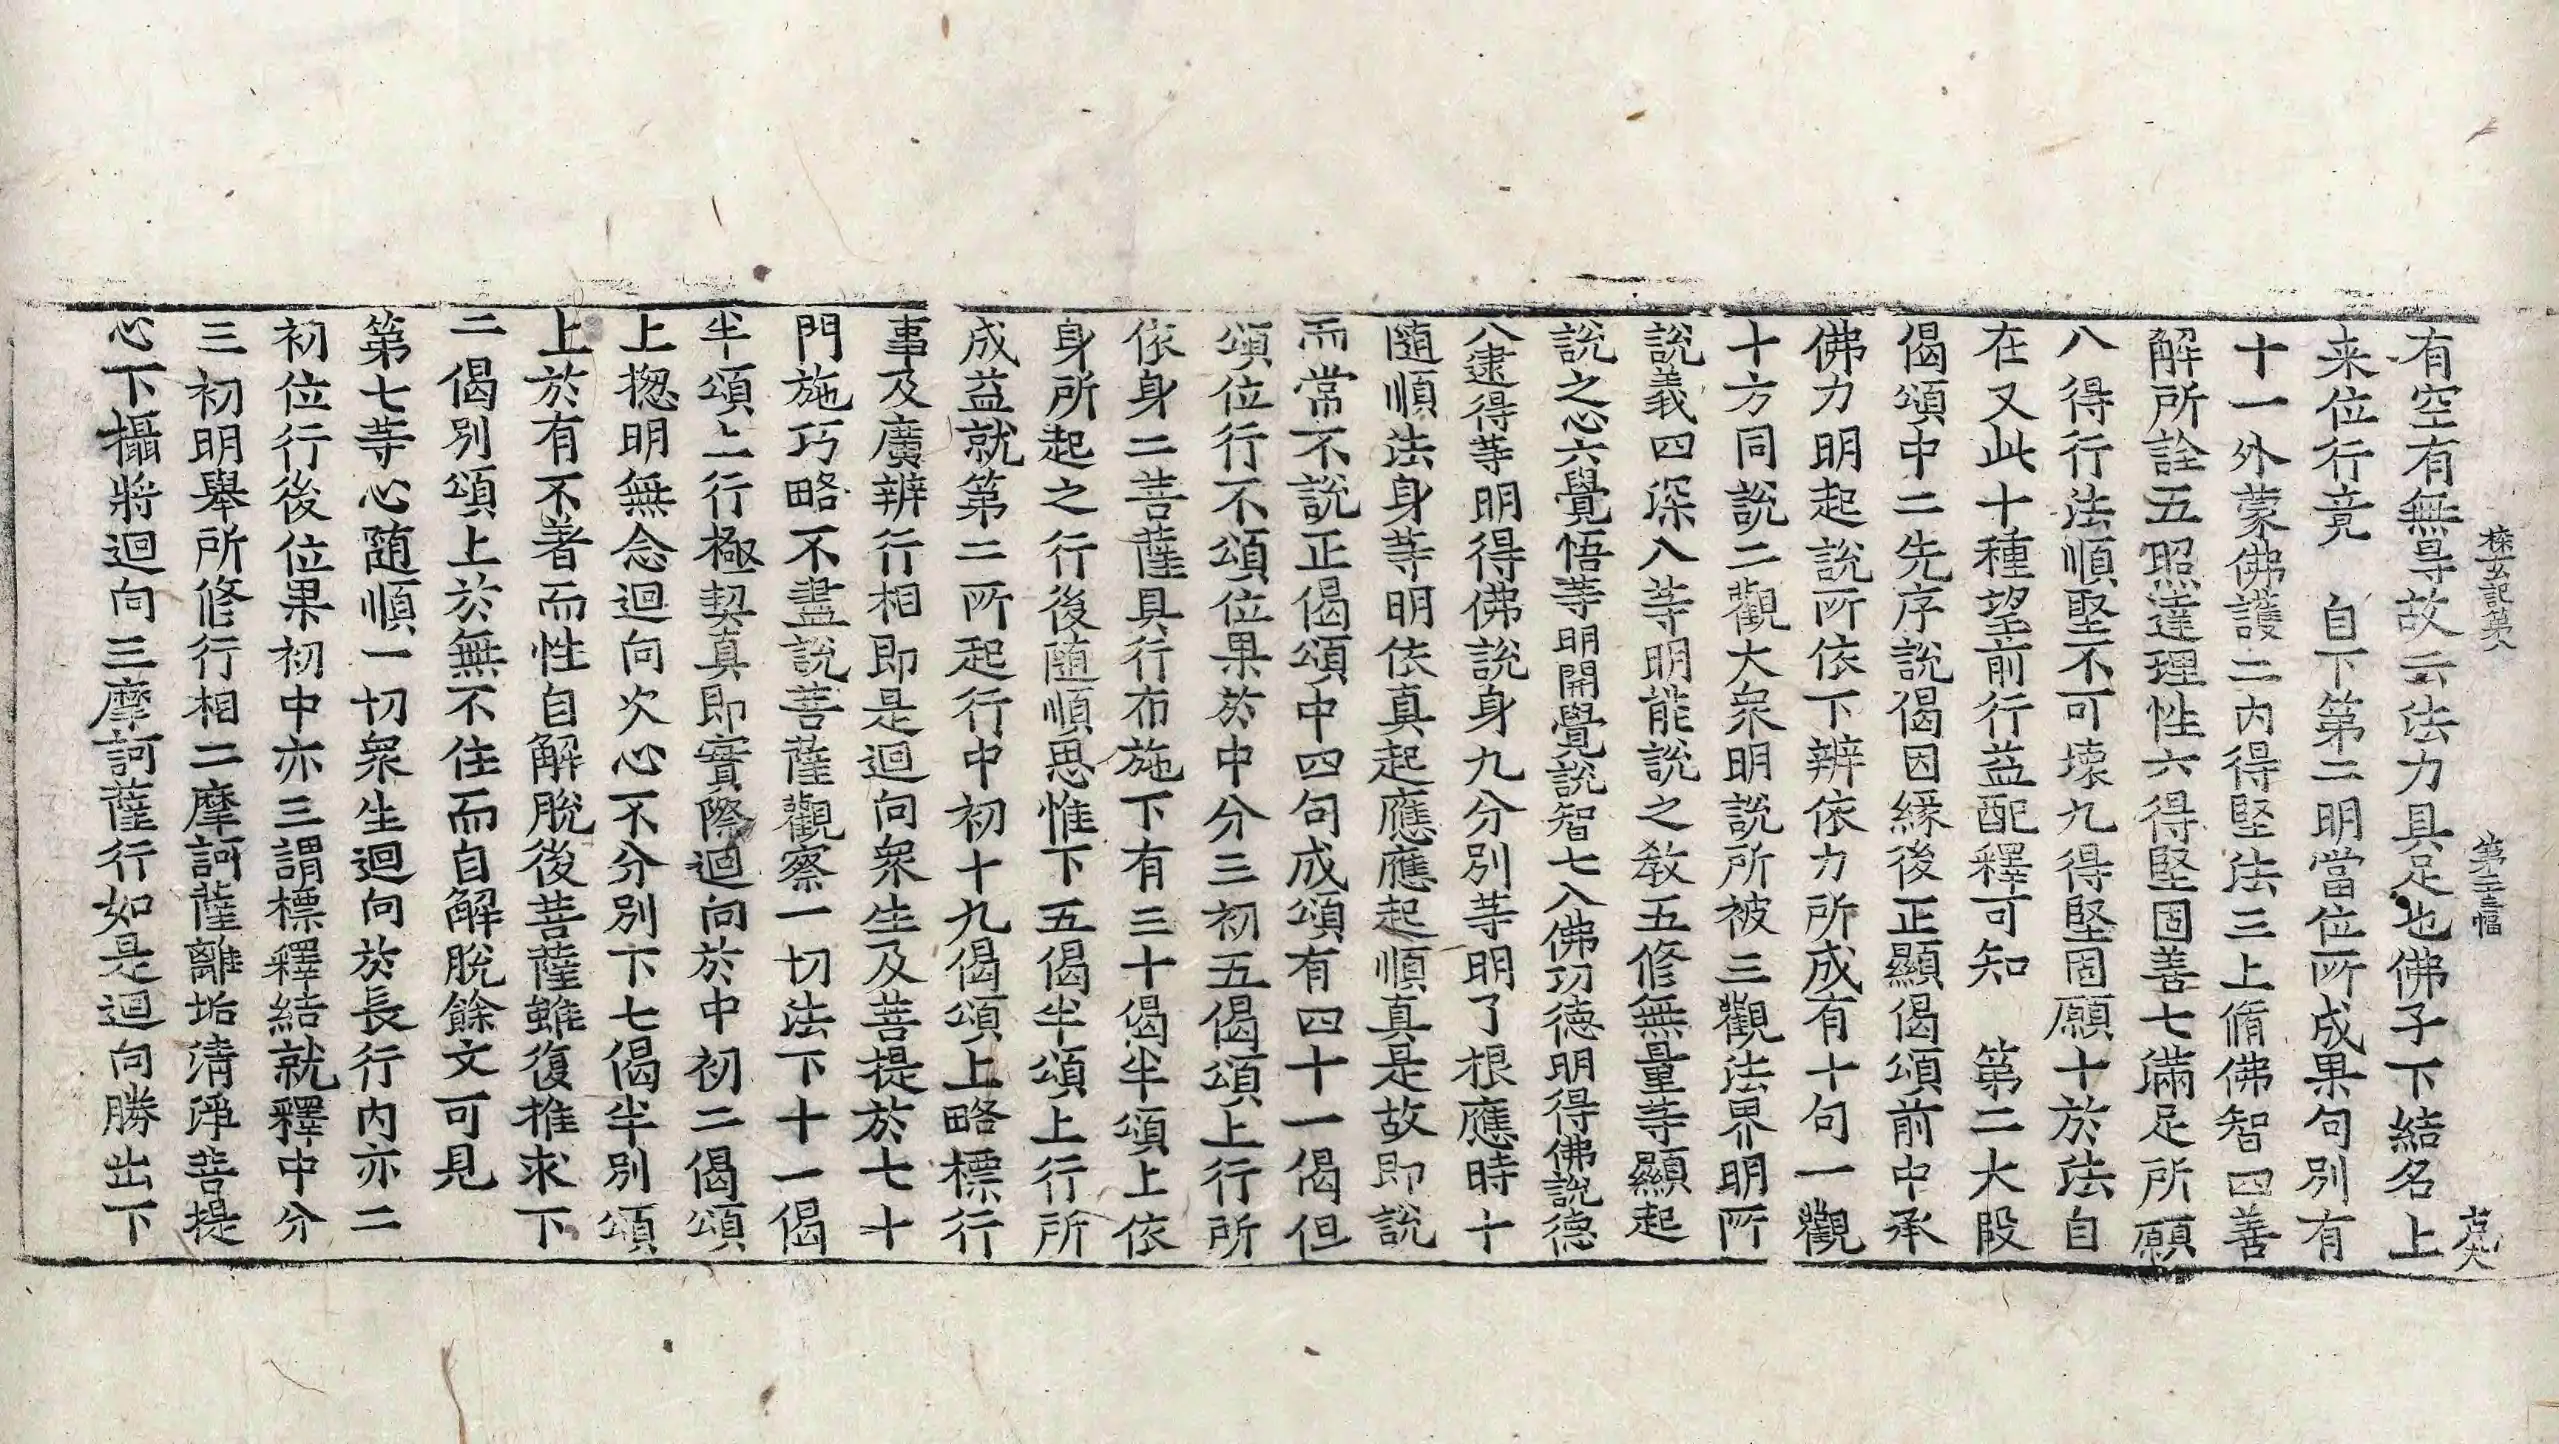 探玄記第八 第三幅
有空有無㝵故云法力具足也佛子下結名上
来位行竟 自下第二明當位所成果句別有
十一外蒙佛護二內得堅法三上脩佛智四善
解所詮五照達理性六得堅固善七滿足所願
八得行法順堅不可壞九得堅固願十於法自
在又此十種望前行益配釋可知 第二大段
偈頌中二先序說偈因緣後正顯偈頌前中承
佛力明起說所依下辨依力所成有十句一觀
十方同說二觀大衆明說所被三觀法界明所
說義四深入等明能說之教五修無量等顯起
說之心六覺悟等明開覺說智七入佛功德明得佛說德
八逮得等明得佛說身九分別等明了根應時十
隨順法身等明依真起應應起順真是故即說
而常不說正偈頌中四句成頌有四十一偈但
頌位行不頌位果於中分三初五偈頌上行所
依身二菩薩具行布施下有三十偈半頌上依
身所起之行後隨順思惟下五偈半頌上行所
成益就第二所起行中初十九偈頌上略標行
事及廣辨行相即是迴向衆生及菩提於七十
門施巧略不盡說菩薩觀察一切法下十一偈
半頌上行極契真即實際迴向於中初二偈頌
上揔明無念迴向次心不分別下七偈半別頌
上於有不著而性自解脫後菩薩雖復推求下
二偈別頌上於無不住而自解脫餘文可見
第七等心隨順一切衆生迴向於長行內亦二
初位行後位果初中亦三謂標釋結就釋中分
三初明舉所修行相二摩訶薩離垢清淨菩提
心下攝將迴向三摩訶薩行如是迴向勝出下